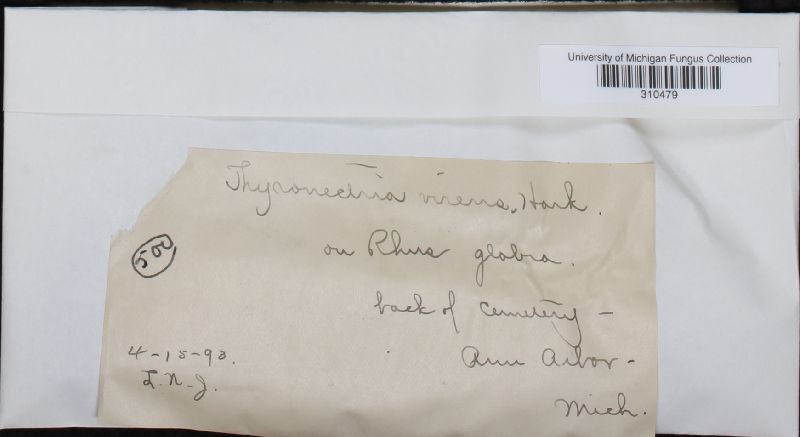 University of Michigan Fungus Collection
310479
Thyronectria virens, Hark.
on Rhus glabra.
500
back of cemetery -
4-15-93.
Ann Arbor -
L. N. J.
Mich.